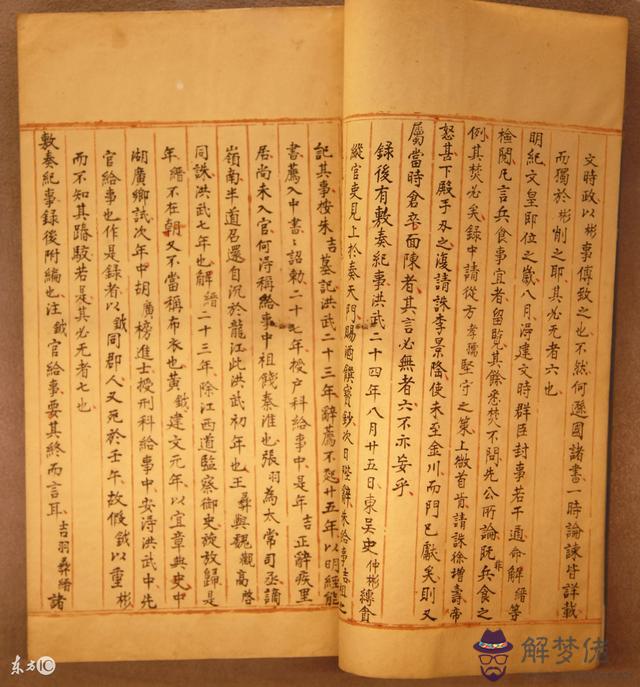 文時政以彬事傅致之也不然何遜國諸書一時論諫皆詳載
而獨於彬削之耶其必无者六也
明紀文皇即位之嵗八月淂建文時群臣封事若干通命解縉等
檢閱凢言兵食事宜者留覧其餘悉焚不問先公所論旣非兵食之
例其焚必矣録中請從方孝孺堅守之策上微首肯請誅徐增壽帝
怒甚下殿手刃之復請誅李景隆使未至金川而門已獻矣則又
屬當時倉卒面陳者其言必無者六不亦妄乎
録後有敷奏紀事洪武二十四年八月廿五日東吴史仲彬縛貪
縱官吏見上於奏天門賜酒饌寳鈔次日陛辭朱給事吉祖之
記其事按朱吉墓記洪武二十三年辭薦不起廿五年以明經能
書薦入中書二詔勅二十七年授户科給事中是年吉正辭疾里
居尚未入官何淂稱給事中祖餞秦淮也張羽為太常司丞謫
嶺南半道召還自沉於龍江此洪武初年也王彛與魏觀高啓
同誅洪武七年也解縉二十三年除江西道監察御史旋放歸是
年縉不在朝又不當稱布衣也黄鉞建文元年以宜章典史中
湖廣鄉試次年中胡廣榜進士授刑科給事中安淂洪武中先
官給事也作是録者以鉞同郡人又死於壬年故假鉞以重彬
而不知其踳駁若是其必无者七也
敷奏紀事録後附編也注鉞官給事要其終而言耳吉羽彛縉諸
解梦佬
东方IC